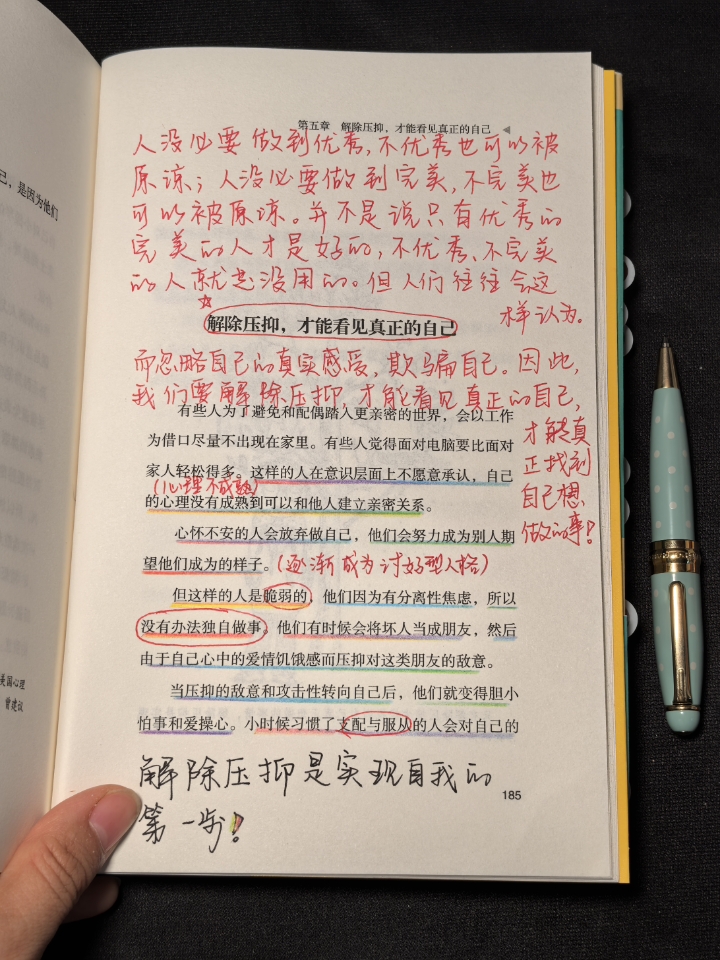 第五章 解除压抑，才能看见真正的自己
人没必要做到优秀，不优秀也可以被
原谅；人没必要做到完美，不完美也
可以被原谅。并不是说只有优秀的
完美的人才是好的，不优秀、不完美
的人就是没用的。但人们往往会这
样认为。
解除压抑，才能看见真正的自己
而忽略自己的真实感受，欺骗自己。因此，
我们要解除压抑，才能看见真正的自己，
才能真
正找到
自己想
做的事！
有些人为了避免和配偶踏入更亲密的世界，会以工作
为借口尽量不出现在家里。有些人觉得面对电脑要比面对
家人轻松得多。这样的人在意识层面上不愿意承认，自己
（心理不成熟）
的心理没有成熟到可以和他人建立亲密关系。
心怀不安的人会放弃做自己，他们会努力成为别人期
望他们成为的样子。（逐渐成为讨好型人格）
但这样的人是脆弱的，他们因为有分离性焦虑，所以
没有办法独自做事。他们有时候会将坏人当成朋友，然后
由于自己心中的爱情饥饿感而压抑对这类朋友的敌意。
当压抑的敌意和攻击性转向自己后，他们就变得胆小
怕事和爱操心。小时候习惯了支配与服从的人会对自己的
解除压抑是实现自我的
第一步！
185
己，是因为他们
美国心理
曾建议